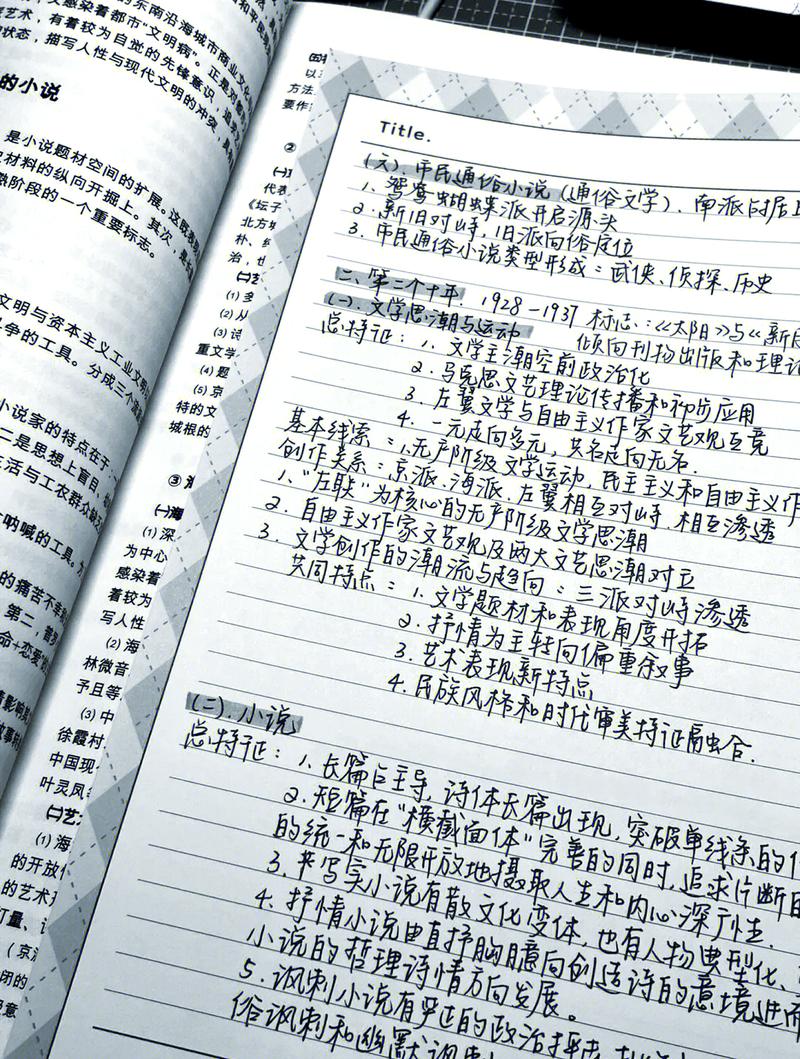 的东南沿海城市商业文化
感染着都市"文明病"。正是对都
艺术，有着较为自觉的先锋意识，追求
状态，描写人性与现代文明的冲突，具有
的小说
是小说题材空间的扩展。这既表现
材料的纵向开掘上。其次，是长
阶段的一个重要标志。
文明与资本主义工业文明
争的工具。分成三个流
小说家的特点在于
二是思想上盲目，
生活与工农群众
呐喊的工具。
的痛苦不幸
第二，
命+恋爱"
以
方法
要作
②
代表
《坛子
北方
朴、
治，也
(1) 多
(2) 从
(3) 讨
重文学
(4) 题
(5) 京
特的文
城根的
③
(一)海
(1) 深
为中心
感染着
着较为
写人性
(2) 海
林微音
予且等
(3) 中
徐霞村
中国现
叶灵凤
(二)艺
(1) 海
的开放性
的艺术
(京
闭的
Title.
(六). 市民通俗小说 (通俗文学). 南派向居上
1. 鸳鸯蝴蝶派开启源头
2. 新旧对峙, 旧派向俗定位
3. 市民通俗小说类型形成：武侠、侦探、历史
二、第二个十年. 1928—1937 标志：《太阳》与《新月
(一). 文学思潮与运动 倾向刊物出版和理论
总特征：1. 文学主潮空前政治化
2. 马克思文艺理论传播和初步应用
3. 左翼文学与自由主义作家文艺观互竞
4. 一元走向多元, 共名走向无名.
基本线索：1.无产阶级文学运动, 民主主义和自由主义作
创作关系：京派、海派、左翼相互对峙, 相互渗透
1. "左联"为核心的无产阶级文学思潮
2. 自由主义作家文艺观及两大文艺思潮对立
3. 文学创作的潮流与趋向：三派对峙渗透
共同特点：1. 文学题材和表现角度开拓
2. 抒情为主转向偏重叙事
3. 艺术表现新特点
4. 民族风格和时代审美特征融合.
(二). 小说
总特征：1. 长篇占主导, 诗体长篇出现, 突破单线条的
2. 短篇在"横截面体"完善的同时, 追求片断的
的统一和无限开放地摄取人生和内心深广性.
3. 写实小说有散文化变体, 也有人物典型化、
4. 抒情小说由直抒胸臆向创造诗的意境进而
小说的哲理诗情方向发展。
5. 讽刺小说有严正的政治
俗讽刺和幽默讽刺